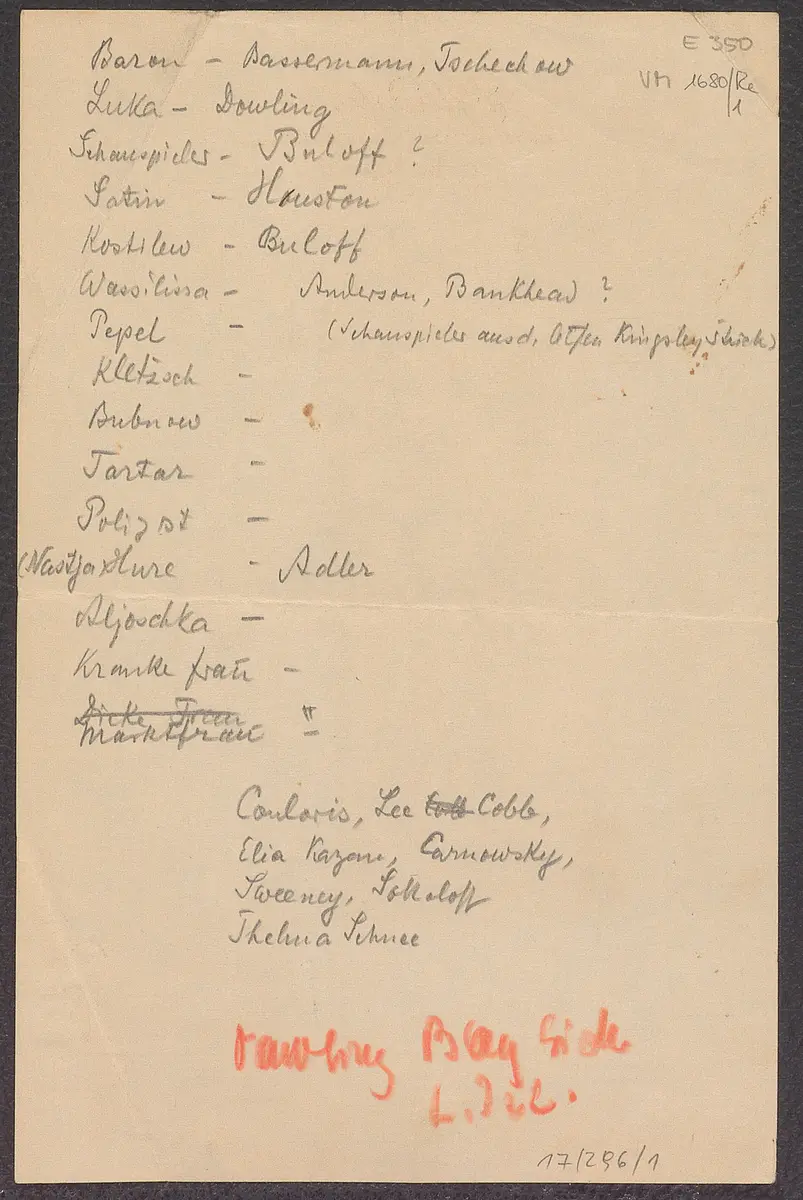 E 350
VM 1680/Re
1
Baron – Bassermann, Tschechow
Luka – Dowling
Schauspieler – Buloff ?
Satin – Houston
Kostilew – Buloff
Wassilissa – Anderson, Bankhead ?
Pepel – (Schauspieler aus d. letzten Kingsley Stück)
Kletzsch –
Bubnow –
Tartar –
Polizist –
(Nastja) Hure – Adler
Aljoschka –
Kranke Frau –
Dicke Frau "
Marktfrau –
Couloris, Lee Cobb,
Elia Kazan, Carnowsky,
Sweeney, Sokoloff
Thelma Schnee
L. Isl.
17/296/1